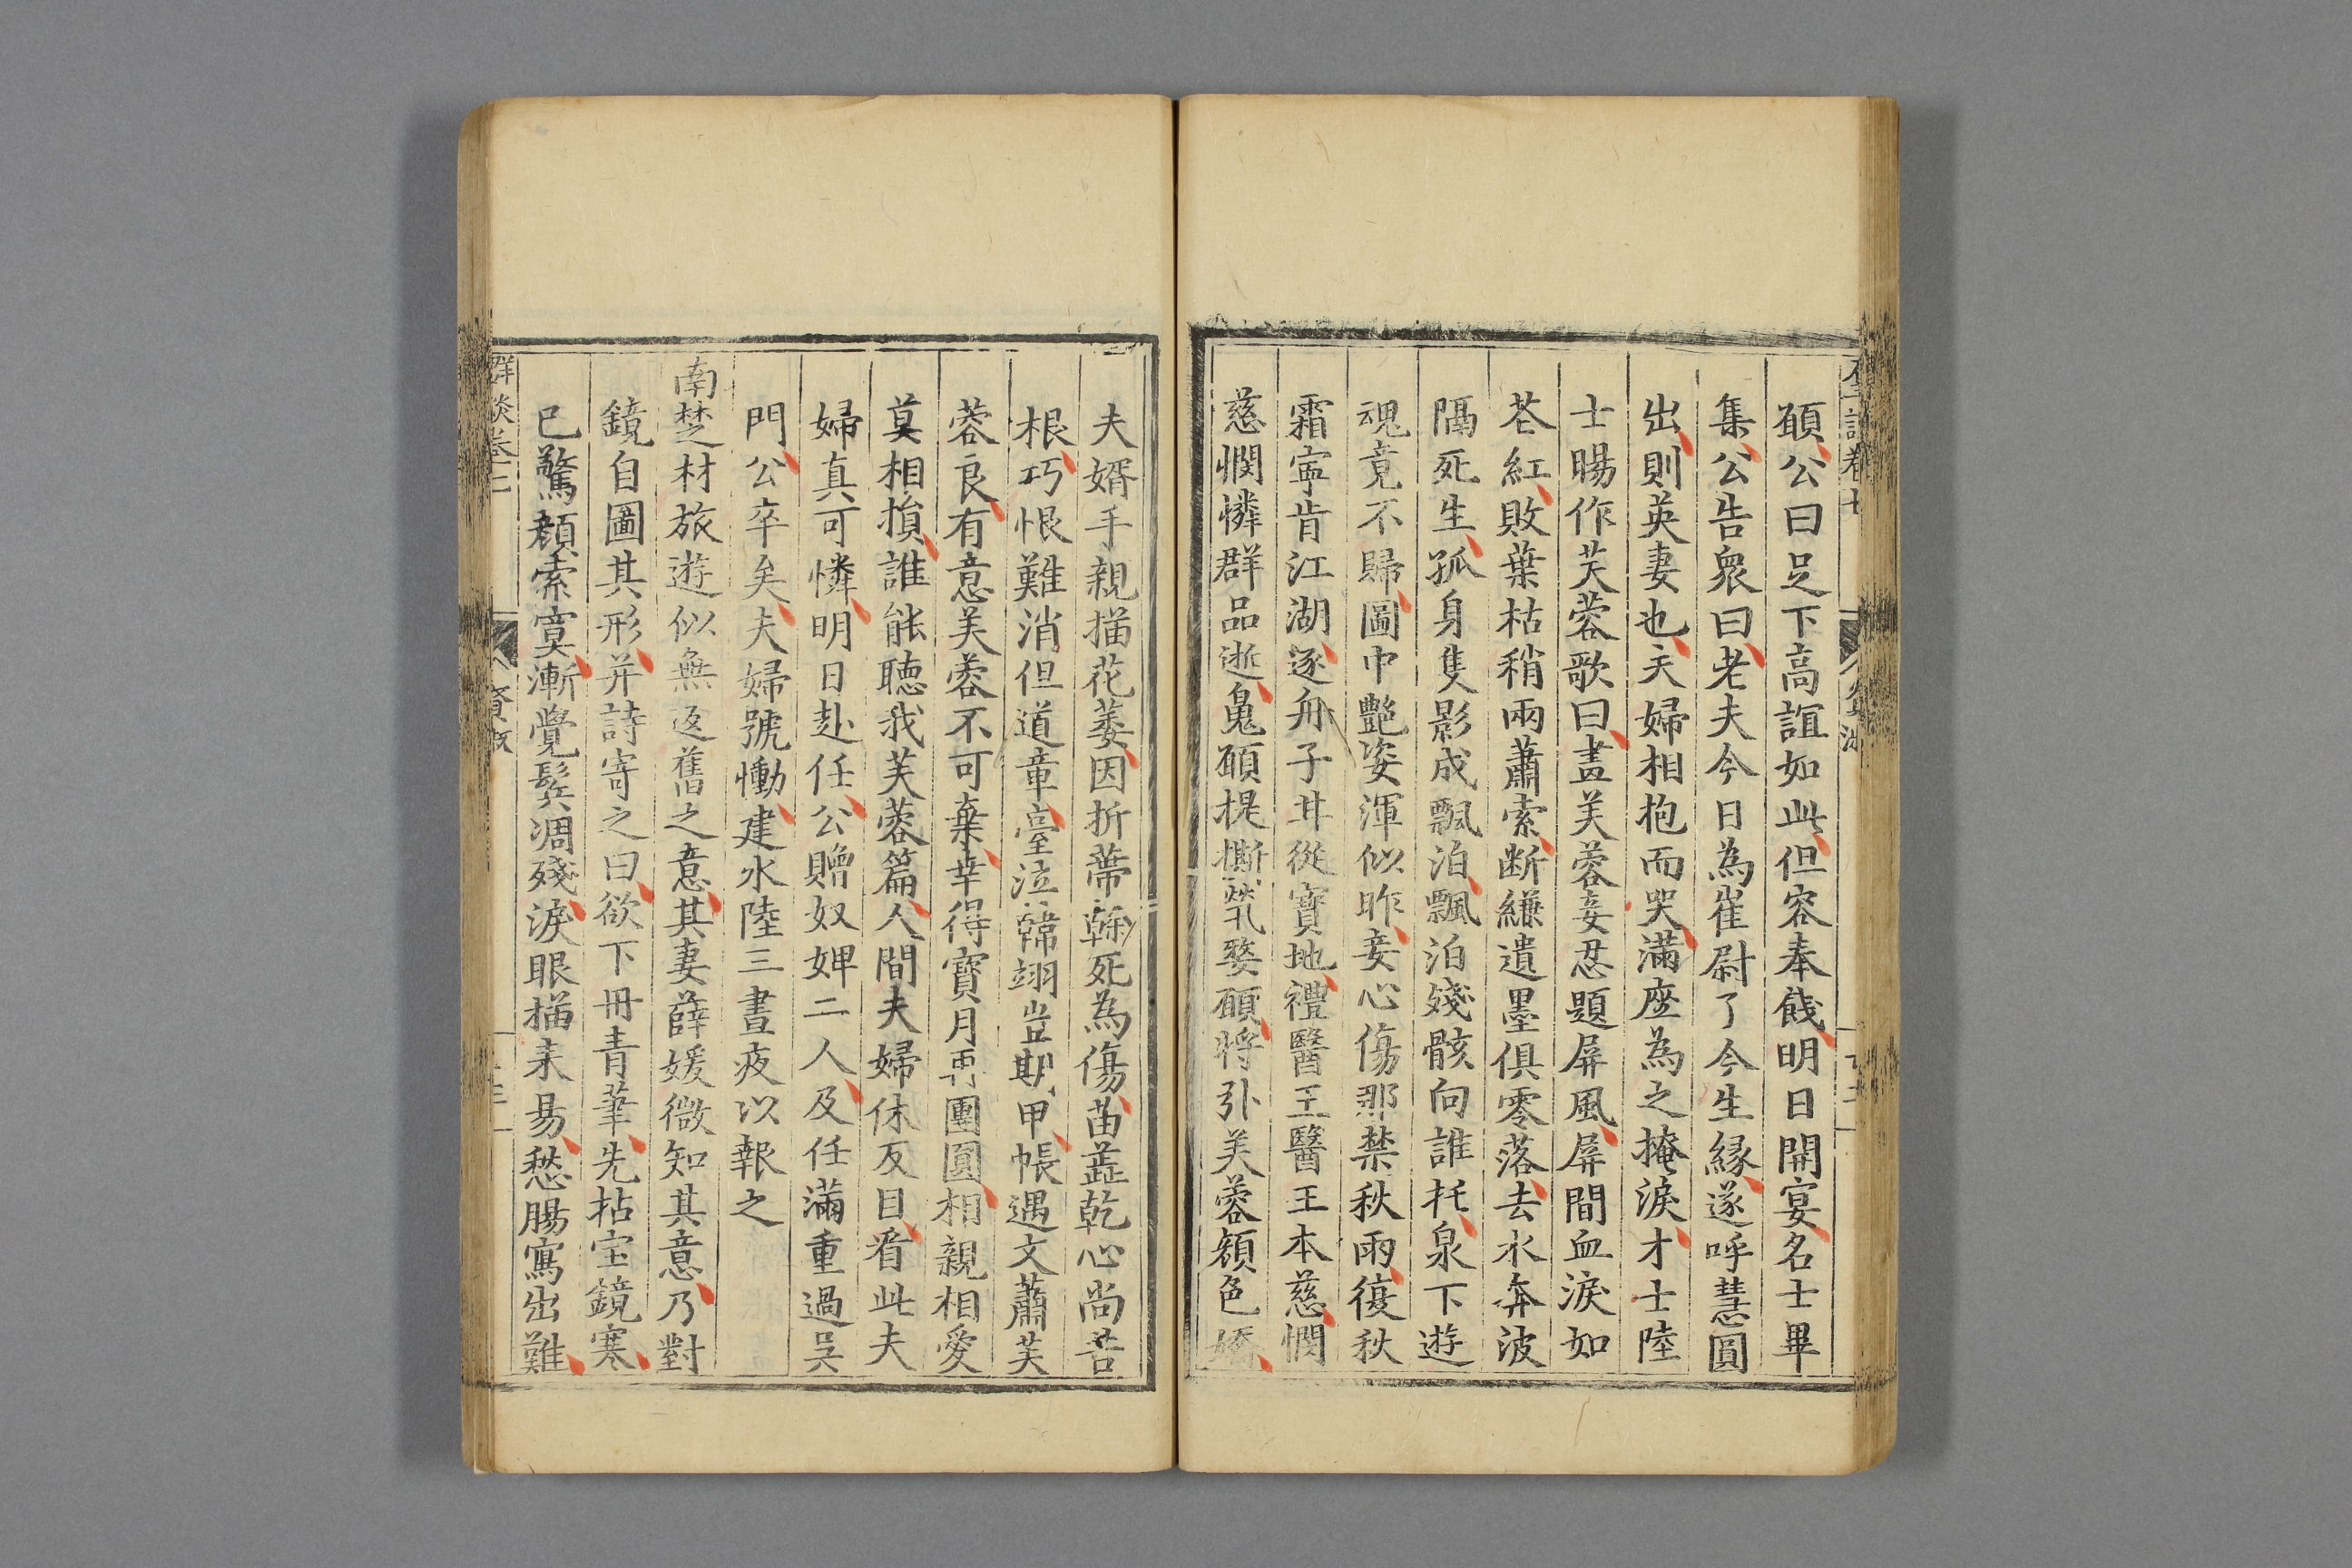 願公曰足下高誼如此但容奉餞明日開宴名士畢
集公告衆曰老夫今日為崔尉了今生縁遂呼慧圓
出則英妻也夫婦相抱而哭滿座為之掩淚才士陸
士暘作芙蓉歌曰畫芙蓉妾忍題屏風屏間血淚如
花紅敗葉枯稍兩蕭索断縑遺墨俱零落去水奔波
隔死生孤身隻影成飄泊飄泊殘骸向誰托泉下遊
魂竟不歸圖中艷姿渾似昨妾心傷那禁秋雨復秋
霜寧肯江湖逐舟子甘從寶地禮醫王醫王本慈憫
慈憫憐群品逝䰟願提撕煢嫠願將引芙蓉顔色嬌
夫婿手親描花萎因折蒂幹死為傷苗蕋乾心尚苦
根巧恨難消但道章臺泣韓翃豈期甲帳遇文蕭芙
蓉良有意芙蓉不可棄幸得寳月再團圓相親相愛
莫相損誰能聽我芙蓉篇人間夫婦休反目看此夫
婦真可憐明日赴任公贈奴婢二人及任滿重過吴
門公卒矣夫婦號慟建水陸三晝夜以報之
南楚材旅遊似無返舊之意其妻薛媛微知其意乃對
鏡自圖其形并詩寄之曰欲下冊青筆先拈宝鏡寒
已驚顔索寞漸覺鬂凋殘淚眼描来易愁腸寫出難